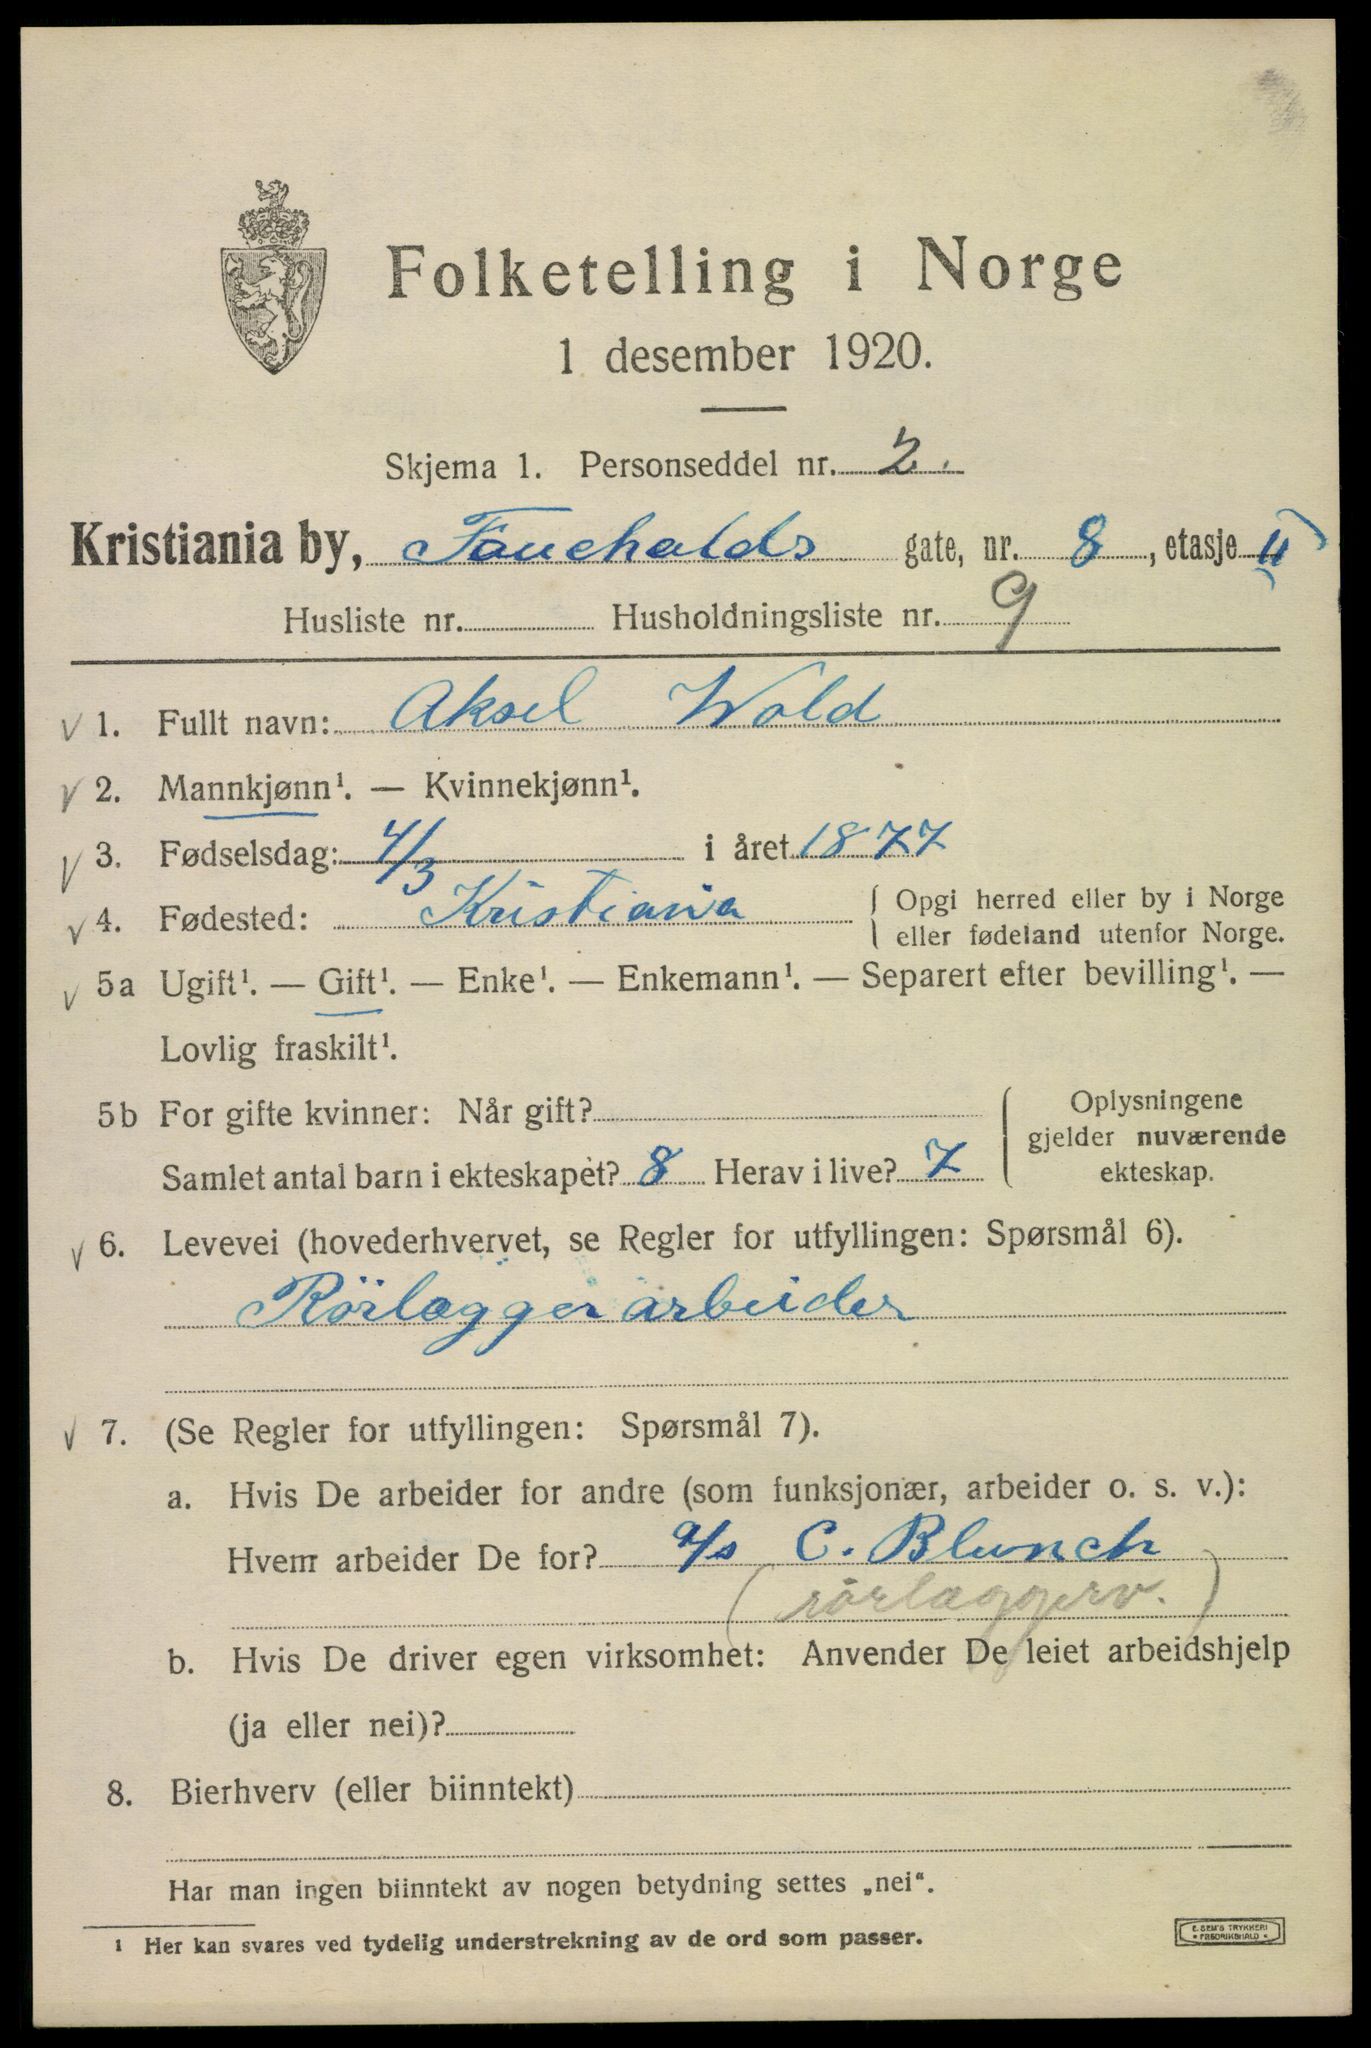 Folketelling i Norge
1 desember 1920.
Skjema 1. Personseddel nr. 2.
Kristiania by, Fauchalds gate, nr. 8, etasje II
Husliste nr. Husholdningsliste nr. 9
1. Fullt navn: Aksel Wold
2. Mannkjønn¹. — Kvinnekjønn¹.
3. Fødselsdag: 4/3 i året 1877
4. Fødested: Kristiania { Opgi herred eller by i Norge
eller fødeland utenfor Norge.
5a Ugift¹. — Gift¹. — Enke¹. — Enkemann¹. — Separert efter bevilling¹. —
Lovlig fraskilt¹.
5b For gifte kvinner: Når gift? { Oplysningene
gjelder nuværende
Samlet antal barn i ekteskapet? 8 Herav i live? 7 ekteskap.
6. Levevei (hovederhvervet, se Regler for utfyllingen: Spørsmål 6).
Rörlægger arbeider
7. (Se Regler for utfyllingen: Spørsmål 7).
a. Hvis De arbeider for andre (som funksjonær, arbeider o. s. v.):
Hvem arbeider De for? a/s C. Blunch
(rörlæggerv.)
b. Hvis De driver egen virksomhet: Anvender De leiet arbeidshjelp
(ja eller nei)?
8. Bierhverv (eller biinntekt)
Har man ingen biinntekt av nogen betydning settes „nei“.
1 Her kan svares ved tydelig understrekning av de ord som passer.
E. SEM'S TRYKKERI
• FREDRIKSHALD •